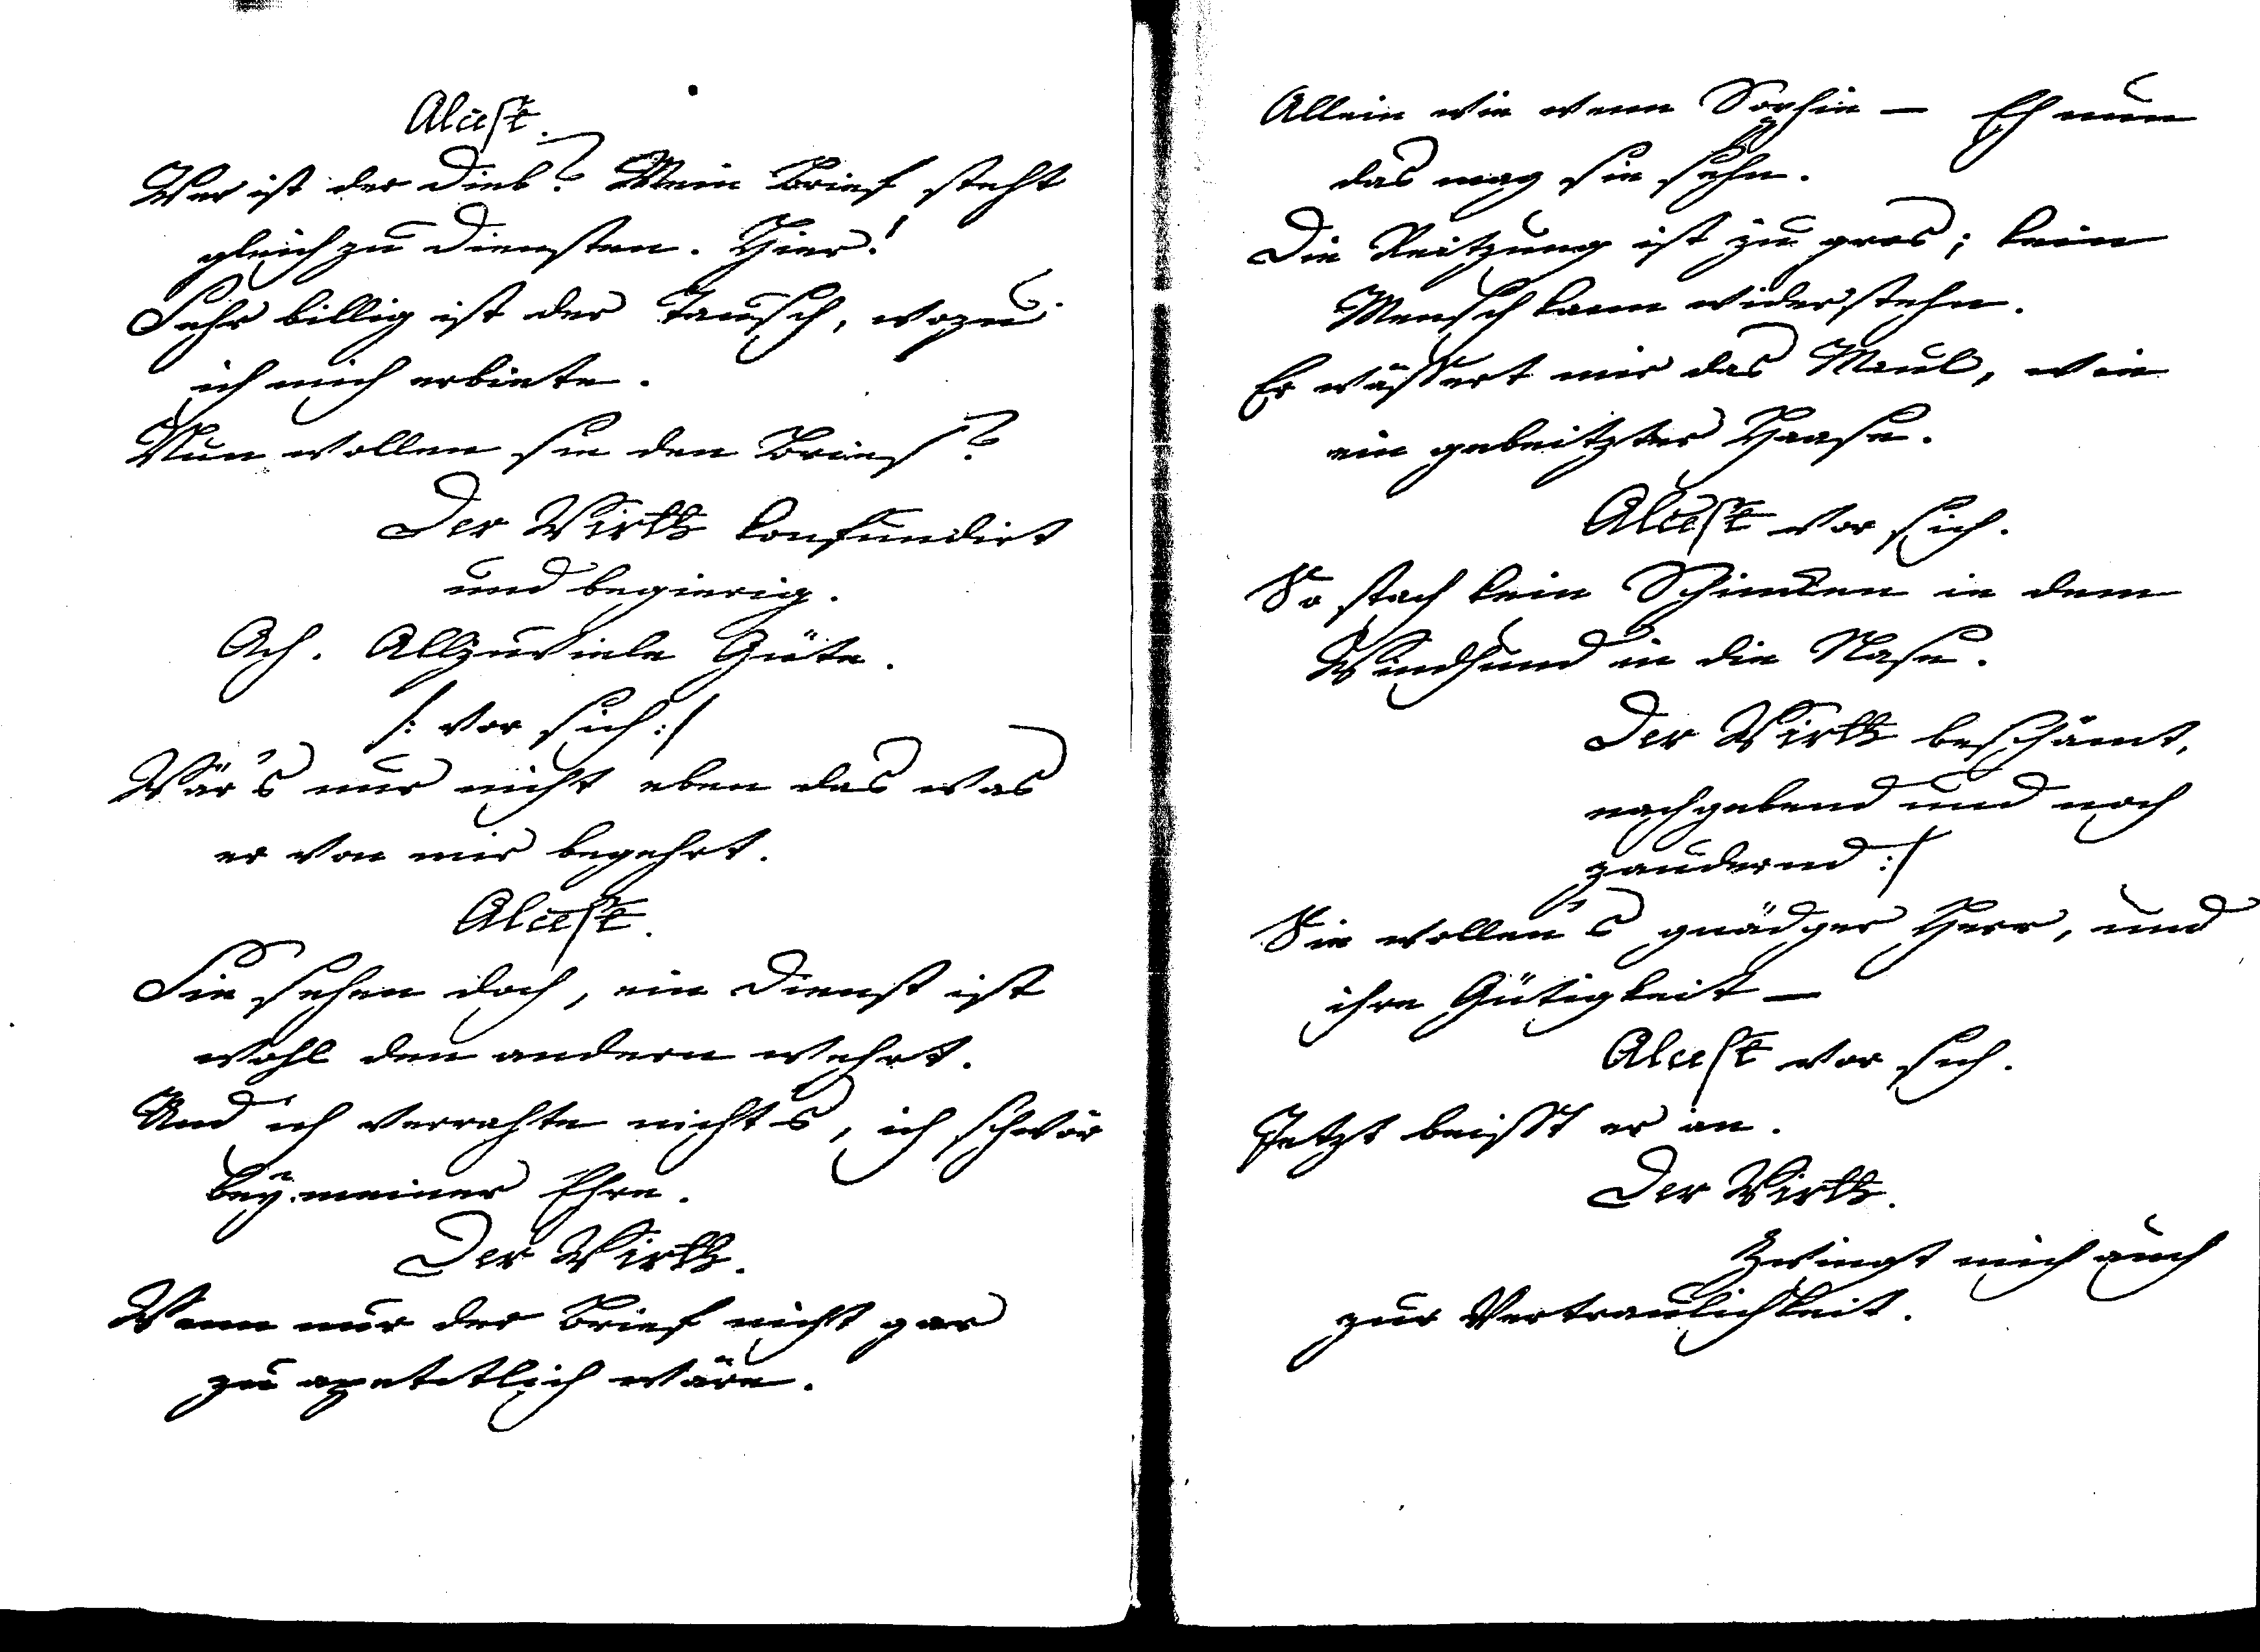 Alcest.
Wer ist der Dieb? Mein Brief steht
gleich zu Diensten. Hier!
Sehr billig ist der Tausch, wozu
ich mich erbiete.
Nun wollen sie den Brief?
Der Wirth konfundirt
und begierig.
Ach. Allzuviele Güte.
/: vor sich :/
Wär's nur nicht eben das was
er von mir begehrt.
Alcest.
Sie sehen doch, ein Dienst ist
wohl den andern wehrt.
Und ich verrahte nichts, ich schwör
bey meiner Ehre.
Der Wirth.
Wenn nur der Brief nicht gar
zu apetitlich wäre.
Allein wie wenn Sophie — Eh nun
das mag sie sehn.
Die Reitzung ist zu gros; kein
Mensch kann widerstehn.
Er wässert mir das Maul, wie
ein gebeitzter Haase.
Alcest vor sich.
So stach kein Schincken je dem
Windhund in die Nase.
Der Wirth beschämt,
nachgebend und noch
zaudernd :/
Sie wollen's gnädger Herr, und
ihre Gütigkeit —
Alcest vor sich.
Jetzt beisst er an.
Der Wirth.
Zwingt mich auch
zur Vertraulichkeit.